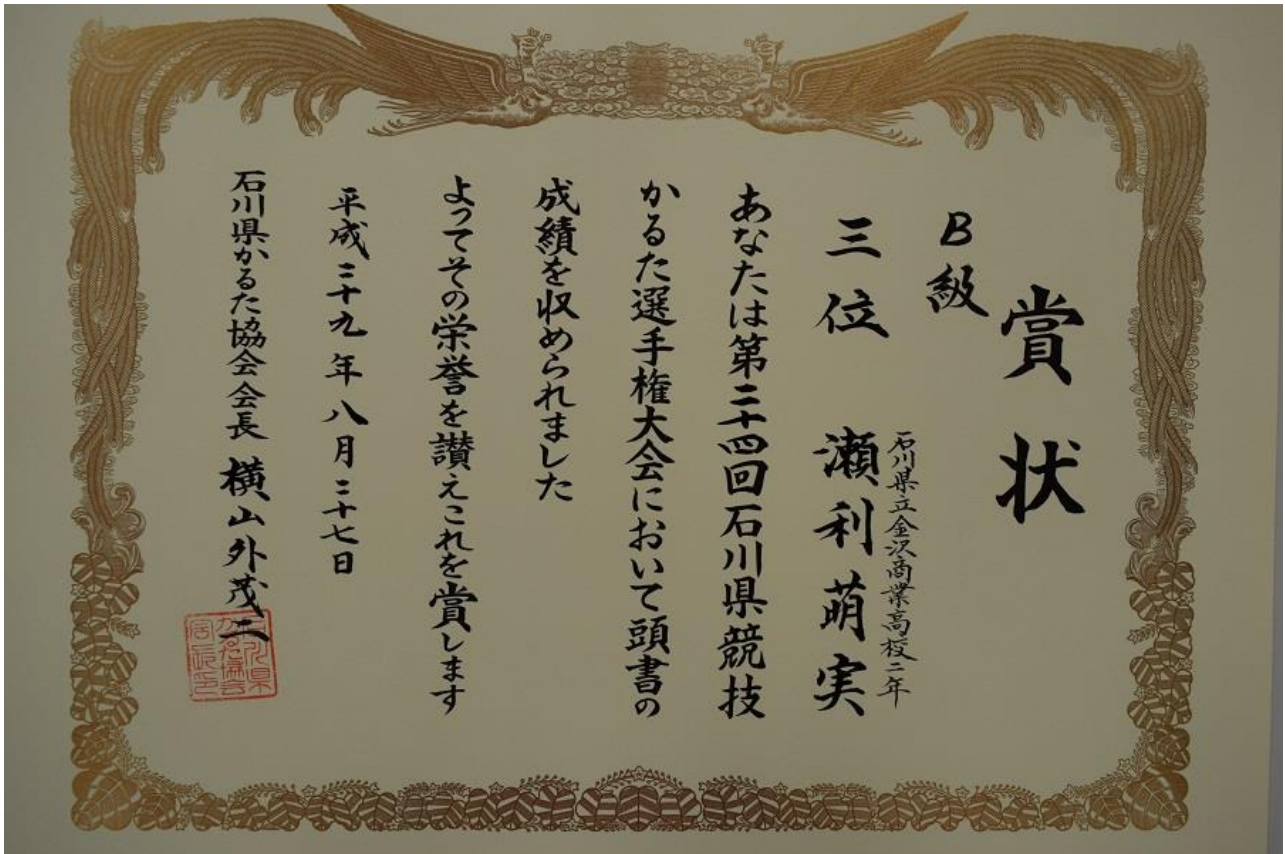 賞状
B級
石川県立金沢商業高校二年
三位 瀬利萌実
あなたは第二十四回石川県競技
かるた選手権大会において頭書の
成績を収められました
よってその栄誉を讃えこれを賞します
平成二十九年八月二十七日
石川県かるた協会会長 横山外茂二
石川県
かるた協会
会長印